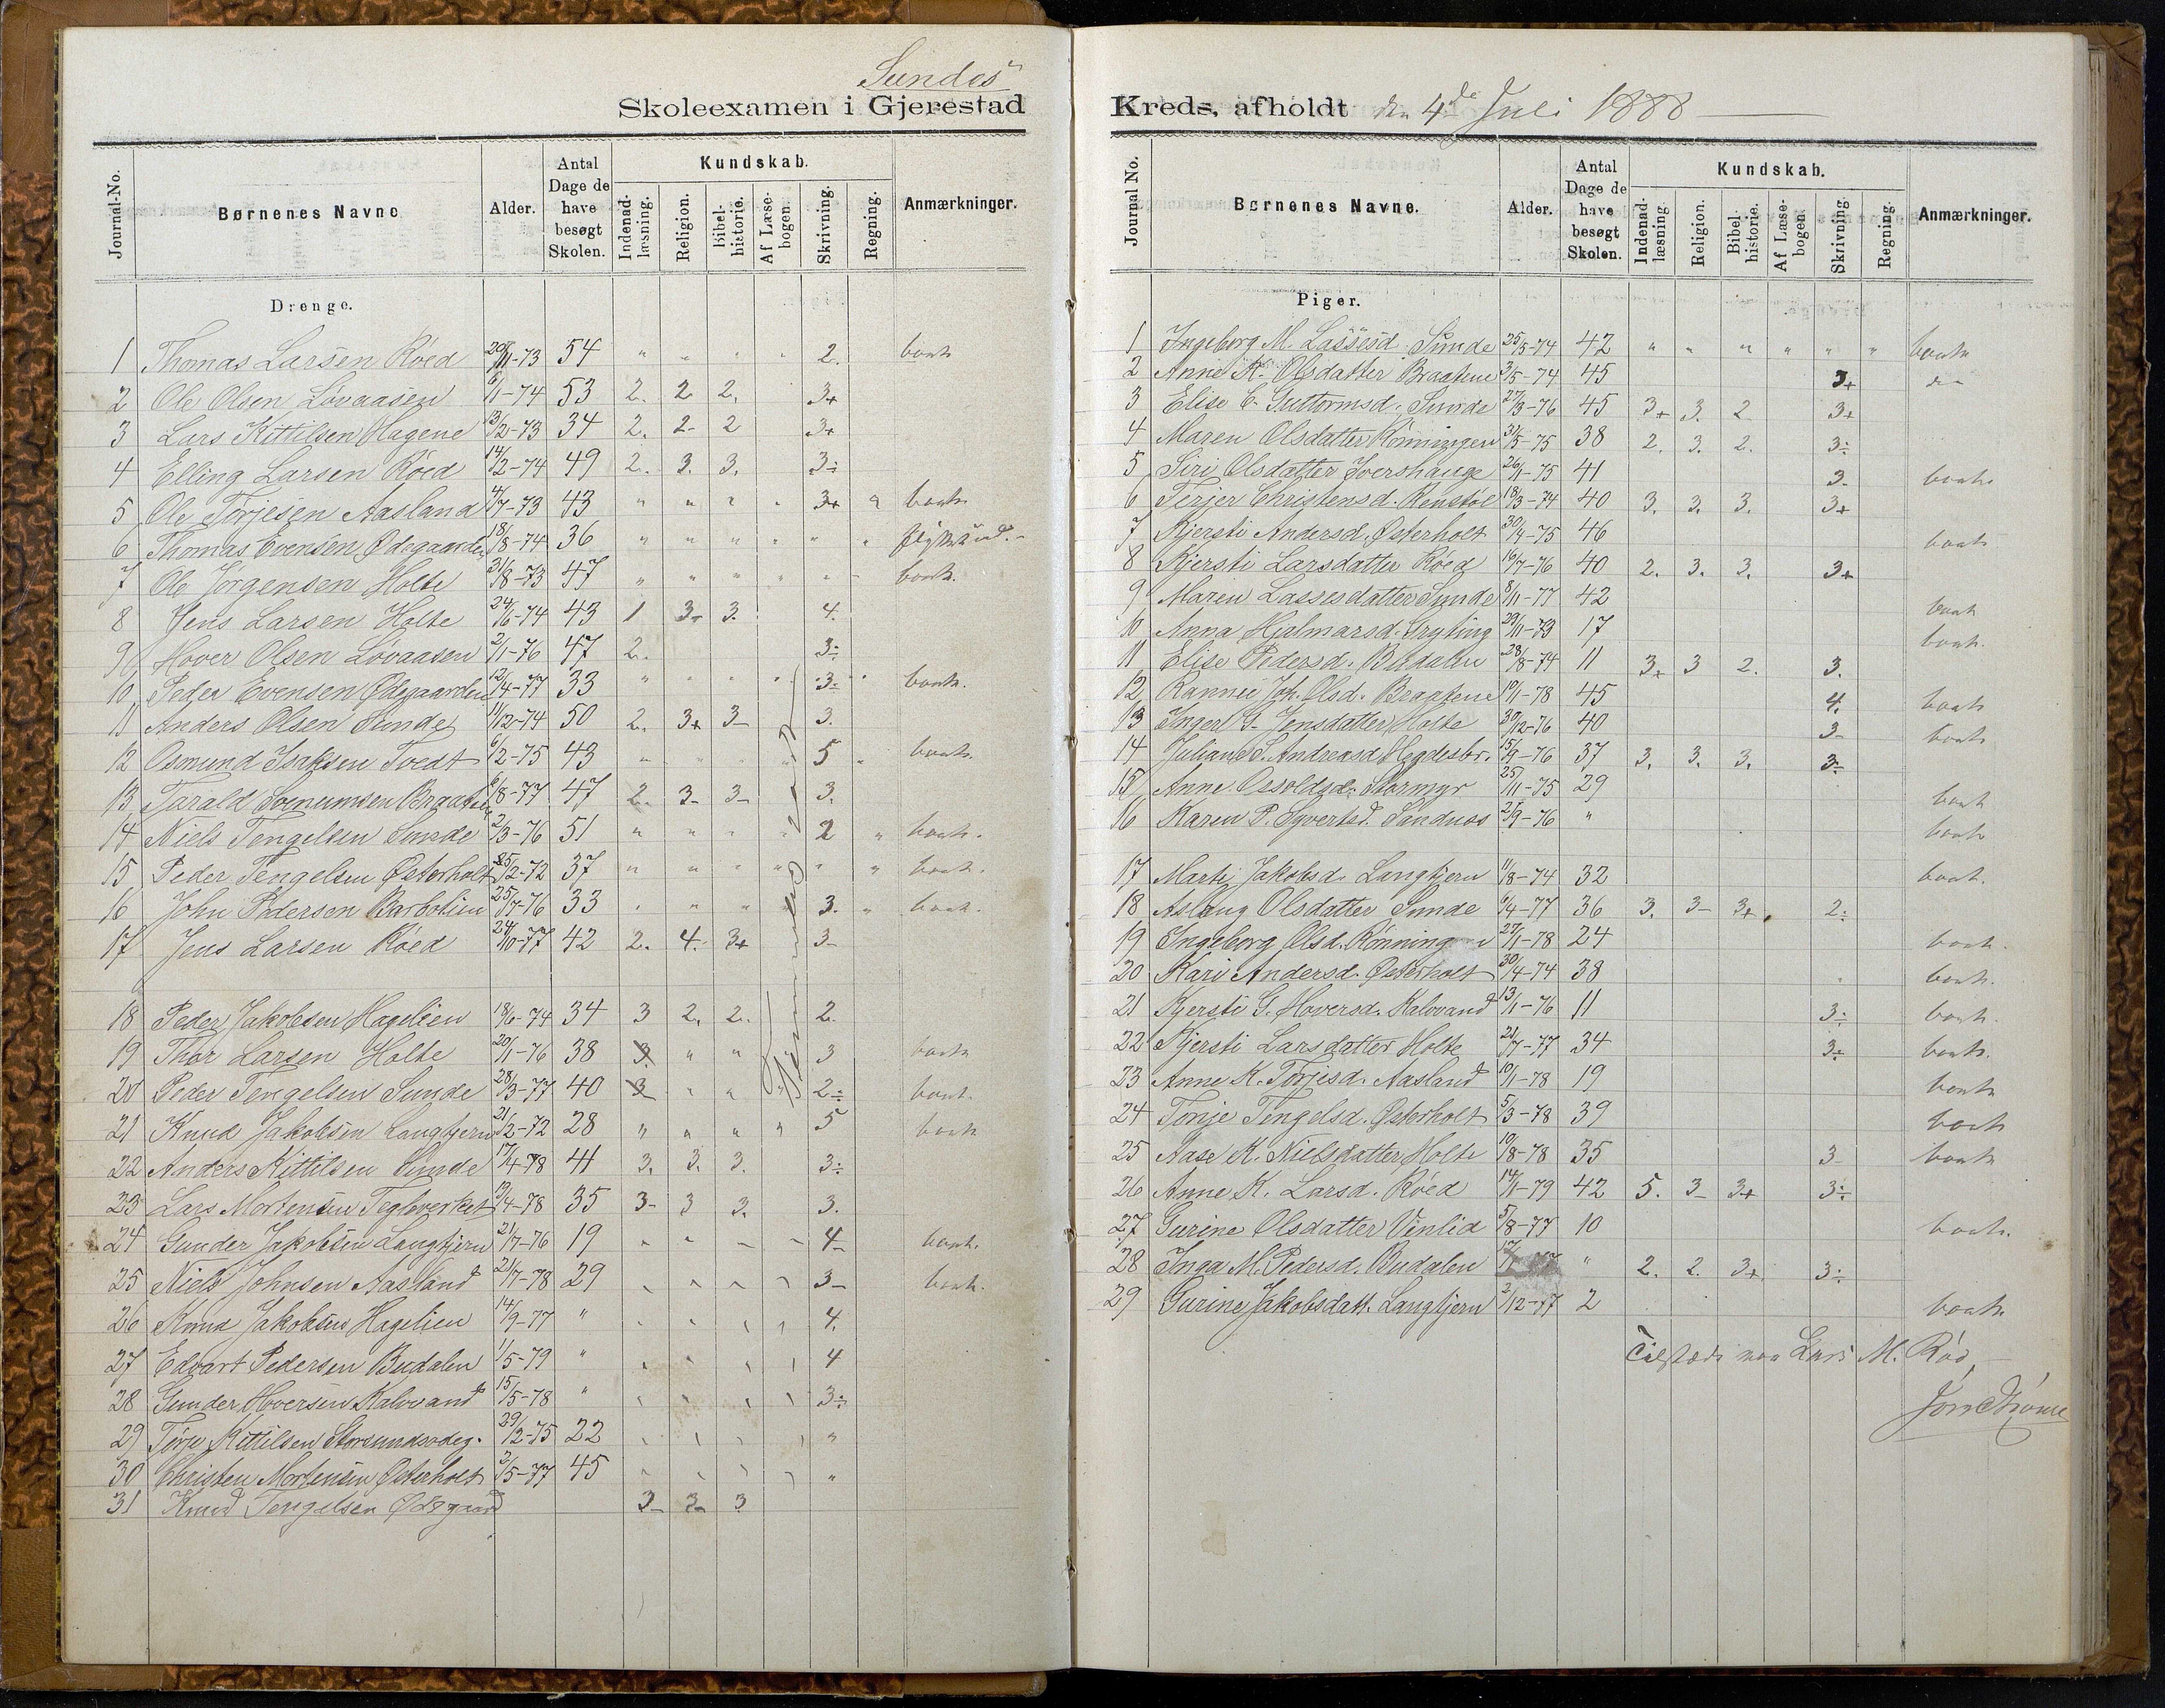 Sundes
Skoleexamen i Gjerestad
Journal-No. | Børnenes Navne | Alder. | Antal Dage de have besøgt Skolen. | Kundskab. | Indenad-læsning. | Religion. | Bibel-historie. | Af Læse-bogen. | Skrivning. | Regning. | Anmærkninger.
Drenge.
1 Thomas Larsen Röed 29/11-73 54 " " " " 2. bortr
2 Ole Olsen Lövaasen 6/1-74 53 2. 2 2. 3+
3 Lars Kittilsen Hagene 13/2-73 34 2. 2- 2 3+
4 Elling Larsen Röed 14/2-74 49 2. 3. 3. 3÷
5 Ole Torjesen Aasland 4/7-73 43 " " " " 3+ " bortr
6 Thomas Evensen Ødegaarden 18/8-74 36 " " " " " "
7 Ole Jörgensen Holte 31/8-73 47 " " " " " bortr.
8 Jens Larsen Holte 24/6-74 43 1 3- 3. 4.
9 Hover Olsen Lovaasen 2/1-76 47 2. 3÷
10 Peder Evensen Ødegaarden 12/4-77 33 " " " " 3÷ " bortr.
11 Anders Olsen Sunde 11/12-74 50 2. 3+ 3- 3.
12 Osmund Isaksen Tvedt 6/2-75 43 " " " " 5 " bortr.
13 Tarald Braaten 6/8-77 47 2. 3- 3- 3.
14 Niels Tengelsen Sunde 2/3-76 51 " " " " 2 " bortr.
15 Peder Tengelsen Østerholt 25/2-72 37 " " " " " " bortr.
16 John Pedersen Barbolien 25/7-76 33 " " " " 3. " bortr.
17 Jens Larsen Röed 24/10-77 42 2. 4. 3+ 3-
18 Peder Jakobsen Hagelien 18/6-74 34 3 2. 2. 2.
19 Thor Larsen Holte 20/1-76 38 3. " " 3 bortr
20 Peder Tengelsen Sunde 28/3-77 40 3 " " " 2÷ bortr.
21 Knud Jakobsen Langtjern 21/2-72 28 " " " " 5 bortr
22 Anders Kittilsen Sunde 17/4-78 41 3. 3. 3. 3÷
23 Lars Mortensen Teglverket 13/4-78 35 3- 3 3. 3.
24 Gunder Jakobsen Langtjern 21/7-76 19 " " " " 4- bortr.
25 Niels Johnsen Aasland 21/7-78 29 " " " " 3- bortr.
26 Knud Jakobsen Hagelien 14/9-77 " " " " " 4.
27 Edvart Pedersen Budalen 1/5-79 " " " " " 4
28 Gunder Hoversen Kalovand 15/5-78 " " " " " 3÷
29 Torje Kittilsen Storsundsodeg. 29/2-75 22 " " " " "
30 Christen Mortensen Østerholt 2/5-77 45 " " " " "
31 Knud Tengelsen Ødegaard 3- 3- 3
Kreds, afholdt den 4de Juli 1888
Journal No. | Børnenes Navne. | Alder. | Antal Dage de have besøgt Skolen. | Kundskab. | Indenad-læsning. | Religion. | Bibel-historie. | Af Læse-bogen. | Skrivning. | Regning. | Anmærkninger.
Piger.
1 Ingeborg M. Lassesd. Sunde 25/5-74 42 " " " " " " bortr
2 Anne K. Olsdatter Braatene 3/5-74 45 3+ do
3 Elise E. Guttormsd. Sunde 27/3-76 45 3+ 3. 2 3+
4 Maren Olsdatter Rönningen 31/5-75 38 2. 3. 2. 3÷
5 Siri Olsdatter Ivershauge 26/1-75 41 3. bortr.
6 Terjer Christensd. Renstöl 18/3-74 40 3. 3. 3. 3+
7 Kjersti Andersd. Østerholt 30/4-75 46 bortr
8 Kjersti Larsdatter Röed 16/7-76 40 2. 3. 3. 3+
9 Maren Lassesdatter Sunde 8/11-77 42 bortr
10 Anna Hjalmarsd. Gryting 29/11-73 17 bortr.
11 Elise Pedersd. Budalen 28/8-74 11 3+ 3 2. 3.
12 Rannei Joh. Olsd. Braatene 19/1-78 45 4. bortr
13 Inger G. Jensdatter Holte 30/12-76 40 3- bortr
14 Juliane S. Andreasd Hegdesbr. 15/2-76 37 3. 3. 3. 3÷
15 Anne Ossoldsd. Stormyr 25/11-75 29 bortr
16 Karen P. Syvertsd. Sandnas 25/9-76 " bortr
17 Marte Jakobsd. Langtjern 11/8-74 32 bortr.
18 Aslaug Olsdatter Sunde 6/4-77 36 3. 3- 3+. 2÷
19 Ingeborg Olsd. Rönningen 27/1-78 24 bortr.
20 Kari Andersd. Østerholt 30/4-74 38 bortr.
21 Kjersti G. Hoversd. Kalovand 13/1-76 11 3÷ bortr.
22 Kjersti Larsdatter Holte 21/7-77 34 3÷ bortr.
23 Anne K. Torjesd. Aasland 10/1-78 19 bortr
24 Tonje Tengelsd. Østerholt 5/3-78 39 bortr
25 Aase K. Nielsdatter Holte 10/8-78 35 3- bortr
26 Anne K. Larsd. Röed 14/1-79 42 5. 3- 3+ 3÷
27 Gurine Olsdatter Vinlid 5/8-77 10 bortr.
28 Inga M. Pedersd. Budalen " 2. 2. 3+ 3÷
29 Gurine Jakobsdatt. Langtjern 2/12-77 2 bortr.
Tilstede var Lars M. Röd